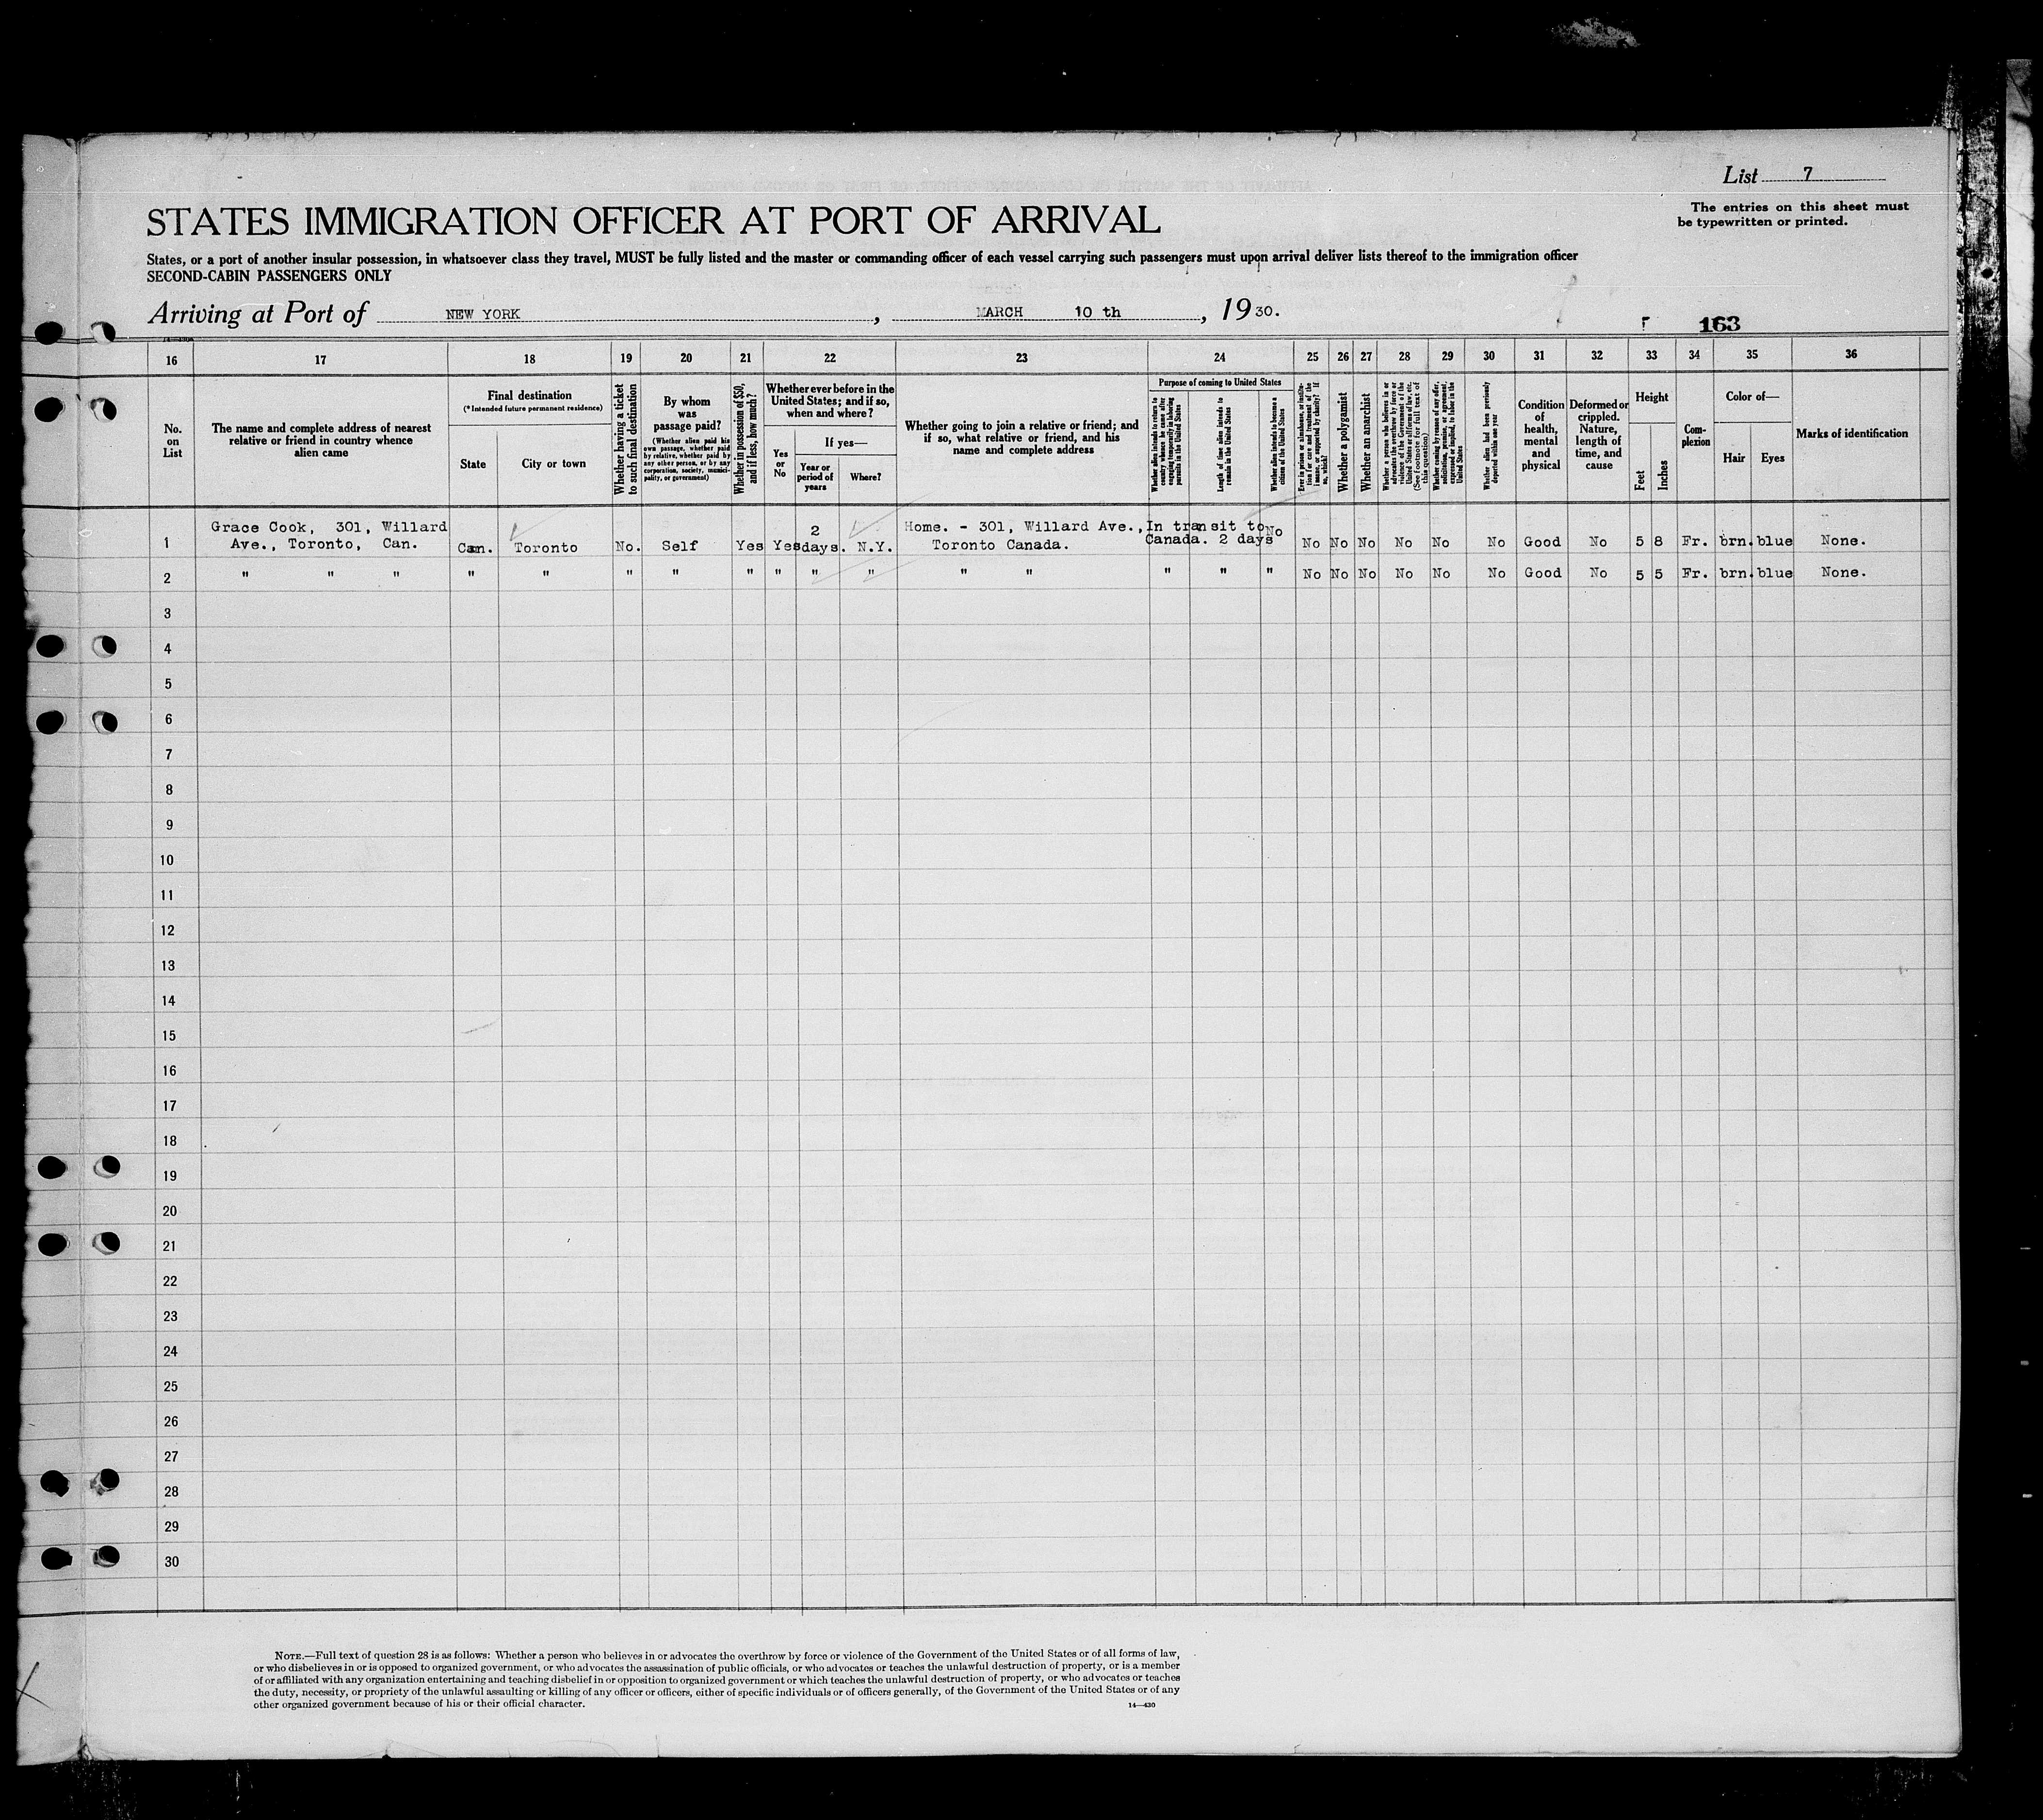 List 7
The entries on this sheet must
be typewritten or printed.
STATES IMMIGRATION OFFICER AT PORT OF ARRIVAL
States, or a port of another insular possession, in whatsoever class they travel, MUST be fully listed and the master or commanding officer of each vessel carrying such passengers must upon arrival deliver lists thereof to the immigration officer
SECOND-CABIN PASSENGERS ONLY
Arriving at Port of NEW YORK, MARCH 10 th, 1930.
163
16 17 18 19 20 21 22 23 24 25 26 27 28 29 30 31 32 33 34 35 36
No.
on
List
The name and complete address of nearest
relative or friend in country whence
alien came
Final destination
(*Intended future permanent residence)
State
City or town
Whether having a ticket
to such final destination
By whom
was
passage paid?
(Whether alien paid his
own passage, whether paid
by relative, whether paid by
any other person, or by any
corporation, society, munici-
pality, or government)
Whether in possession of $50,
and if less, how much?
Whether ever before in the
United States; and if so,
when and where?
Yes
or
No
If yes—
Year or
period of
years
Where?
Whether going to join a relative or friend; and
if so, what relative or friend, and his
name and complete address
Purpose of coming to United States
Whether alien intends to return to
country whence he came after
engaging temporarily in laboring
pursuits in the United States
Length of time alien intends to
remain in the United States
Whether alien intends to become a
citizen of the United States
Ever in prison or almshouse, or institu-
tion for care and treatment of the
insane, or supported by charity? If
so, which?
Whether a polygamist
Whether an anarchist
Whether a person who believes in or
advocates the overthrow by force or
violence of the Government of the
United States or all forms of law, etc.
(See footnote for full text of
this question)
Whether coming by reason of any offer,
solicitation, promise, or agreement,
expressed or implied, to labor in the
United States
Whether alien had been previously
deported within one year
Condition
of
health,
mental
and
physical
Deformed or
crippled.
Nature,
length of
time, and
cause
Height
Feet
Inches
Com-
plexion
Color of—
Hair
Eyes
Marks of identification
Grace Cook, 301, Willard 2 Home. - 301, Willard Ave., In transit to No
1 Ave., Toronto, Can. Can. Toronto No. Self Yes Yes days. N.Y. Toronto Canada. Canada. 2 days No No No No No No Good No 5 8 Fr. brn. blue None.
2 " " " " " " " " " " " " " " " " No No No No No No Good No 5 5 Fr. brn. blue None.
3
4
5
6
7
8
9
10
11
12
13
14
15
16
17
18
19
20
21
22
23
24
25
26
27
28
29
30
NOTE.—Full text of question 28 is as follows: Whether a person who believes in or advocates the overthrow by force or violence of the Government of the United States or of all forms of law,
or who disbelieves in or is opposed to organized government, or who advocates the assassination of public officials, or who advocates or teaches the unlawful destruction of property, or is a member
of or affiliated with any organization entertaining and teaching disbelief in or opposition to organized government or which teaches the unlawful destruction of property, or who advocates or teaches
the duty, necessity, or propriety of the unlawful assaulting or killing of any officer or officers, either of specific individuals or of officers generally, of the Government of the United States or of any
other organized government because of his or their official character.
14—430